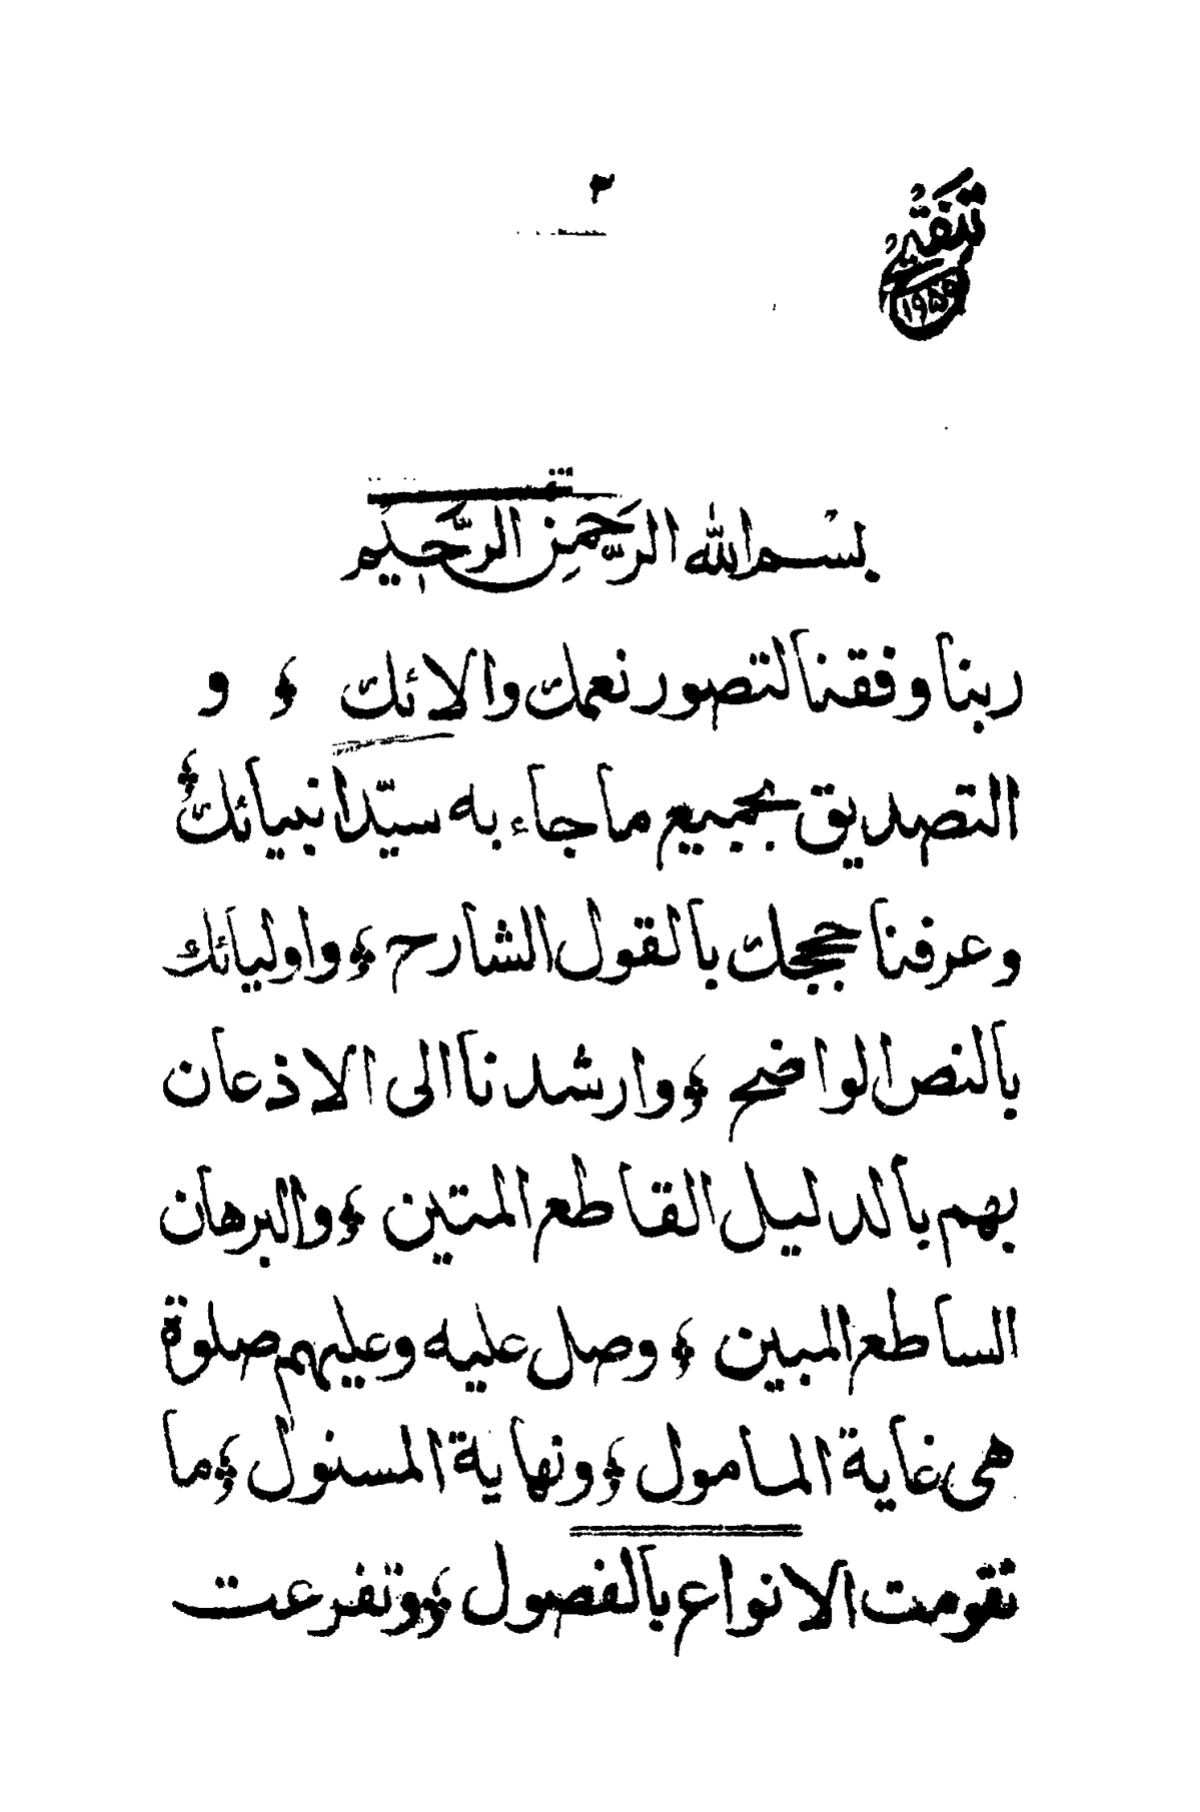 ٣
تنقيح
١٩٥٩
بسم الله الرَّحمٰنِ الرَّحِيم
ربنا وفقنا لتصور نعمك والائك ﴿ و
التصديق بجميع ما جاء به سيّد انبيائك ﴿
وعرفنا حججك بالقول الشارح ﴿ واوليائك
بالنص الواضح ﴿ وارشدنا الى الاذعان
بهم بالدليل القاطع المتين ﴿ والبرهان
الساطع المبين ﴿ وصل عليه وعليهم صلوة
هى غاية المامول ﴿ ونهاية المسئول ﴿ ما
تقومت الانواع بالفصول ﴿ وتفرعت